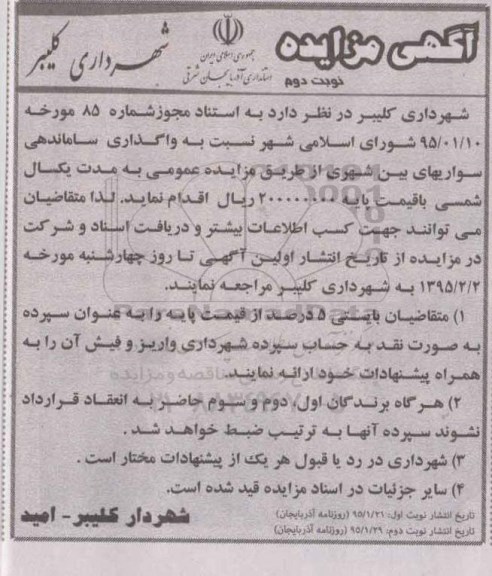 آگهی مزایده
نوبت دوم
جمهوری اسلامی ایران
استانداری آذربایجان شرقی
شهرداری کلیبر
شهرداری کلیبر در نظر دارد به استناد مجوزشماره ۸۵ مورخه
۹۵/۰۱/۱۰ شورای اسلامی شهر نسبت به واگذاری ساماندهی
سواریهای بین شهری از طریق مزایده عمومی به مدت یکسال
شمسی باقیمت پایه ۲۰۰۰۰۰۰۰۰ ریال اقدام نماید. لذا متقاضیان
می توانند جهت کسب اطلاعات بیشتر و دریافت اسناد و شرکت
در مزایده از تاریخ انتشار اولین آگهی تا روز چهارشنبه مورخه
۱۳۹۵/۲/۲ به شهرداری کلیبر مراجعه نمایند.
۱) متقاضیان بایستی ۵ درصد از قیمت پایه را به عنوان سپرده
به صورت نقد به حساب سپرده شهرداری واریز و فیش آن را به
همراه پیشنهادات خود ارائه نمایند.
۲) هرگاه برندگان اول، دوم و سوم حاضر به انعقاد قرارداد
نشوند سپرده آنها به ترتیب ضبط خواهد شد .
۳) شهرداری در رد یا قبول هر یک از پیشنهادات مختار است .
۴) سایر جزئیات در اسناد مزایده قید شده است.
تاریخ انتشار نوبت اول: ۹۵/۱/۲۱ (روزنامه آذربایجان)
تاریخ انتشار نوبت دوم: ۹۵/۱/۲۹ (روزنامه آذربایجان)
شهردار کلیبر- امید